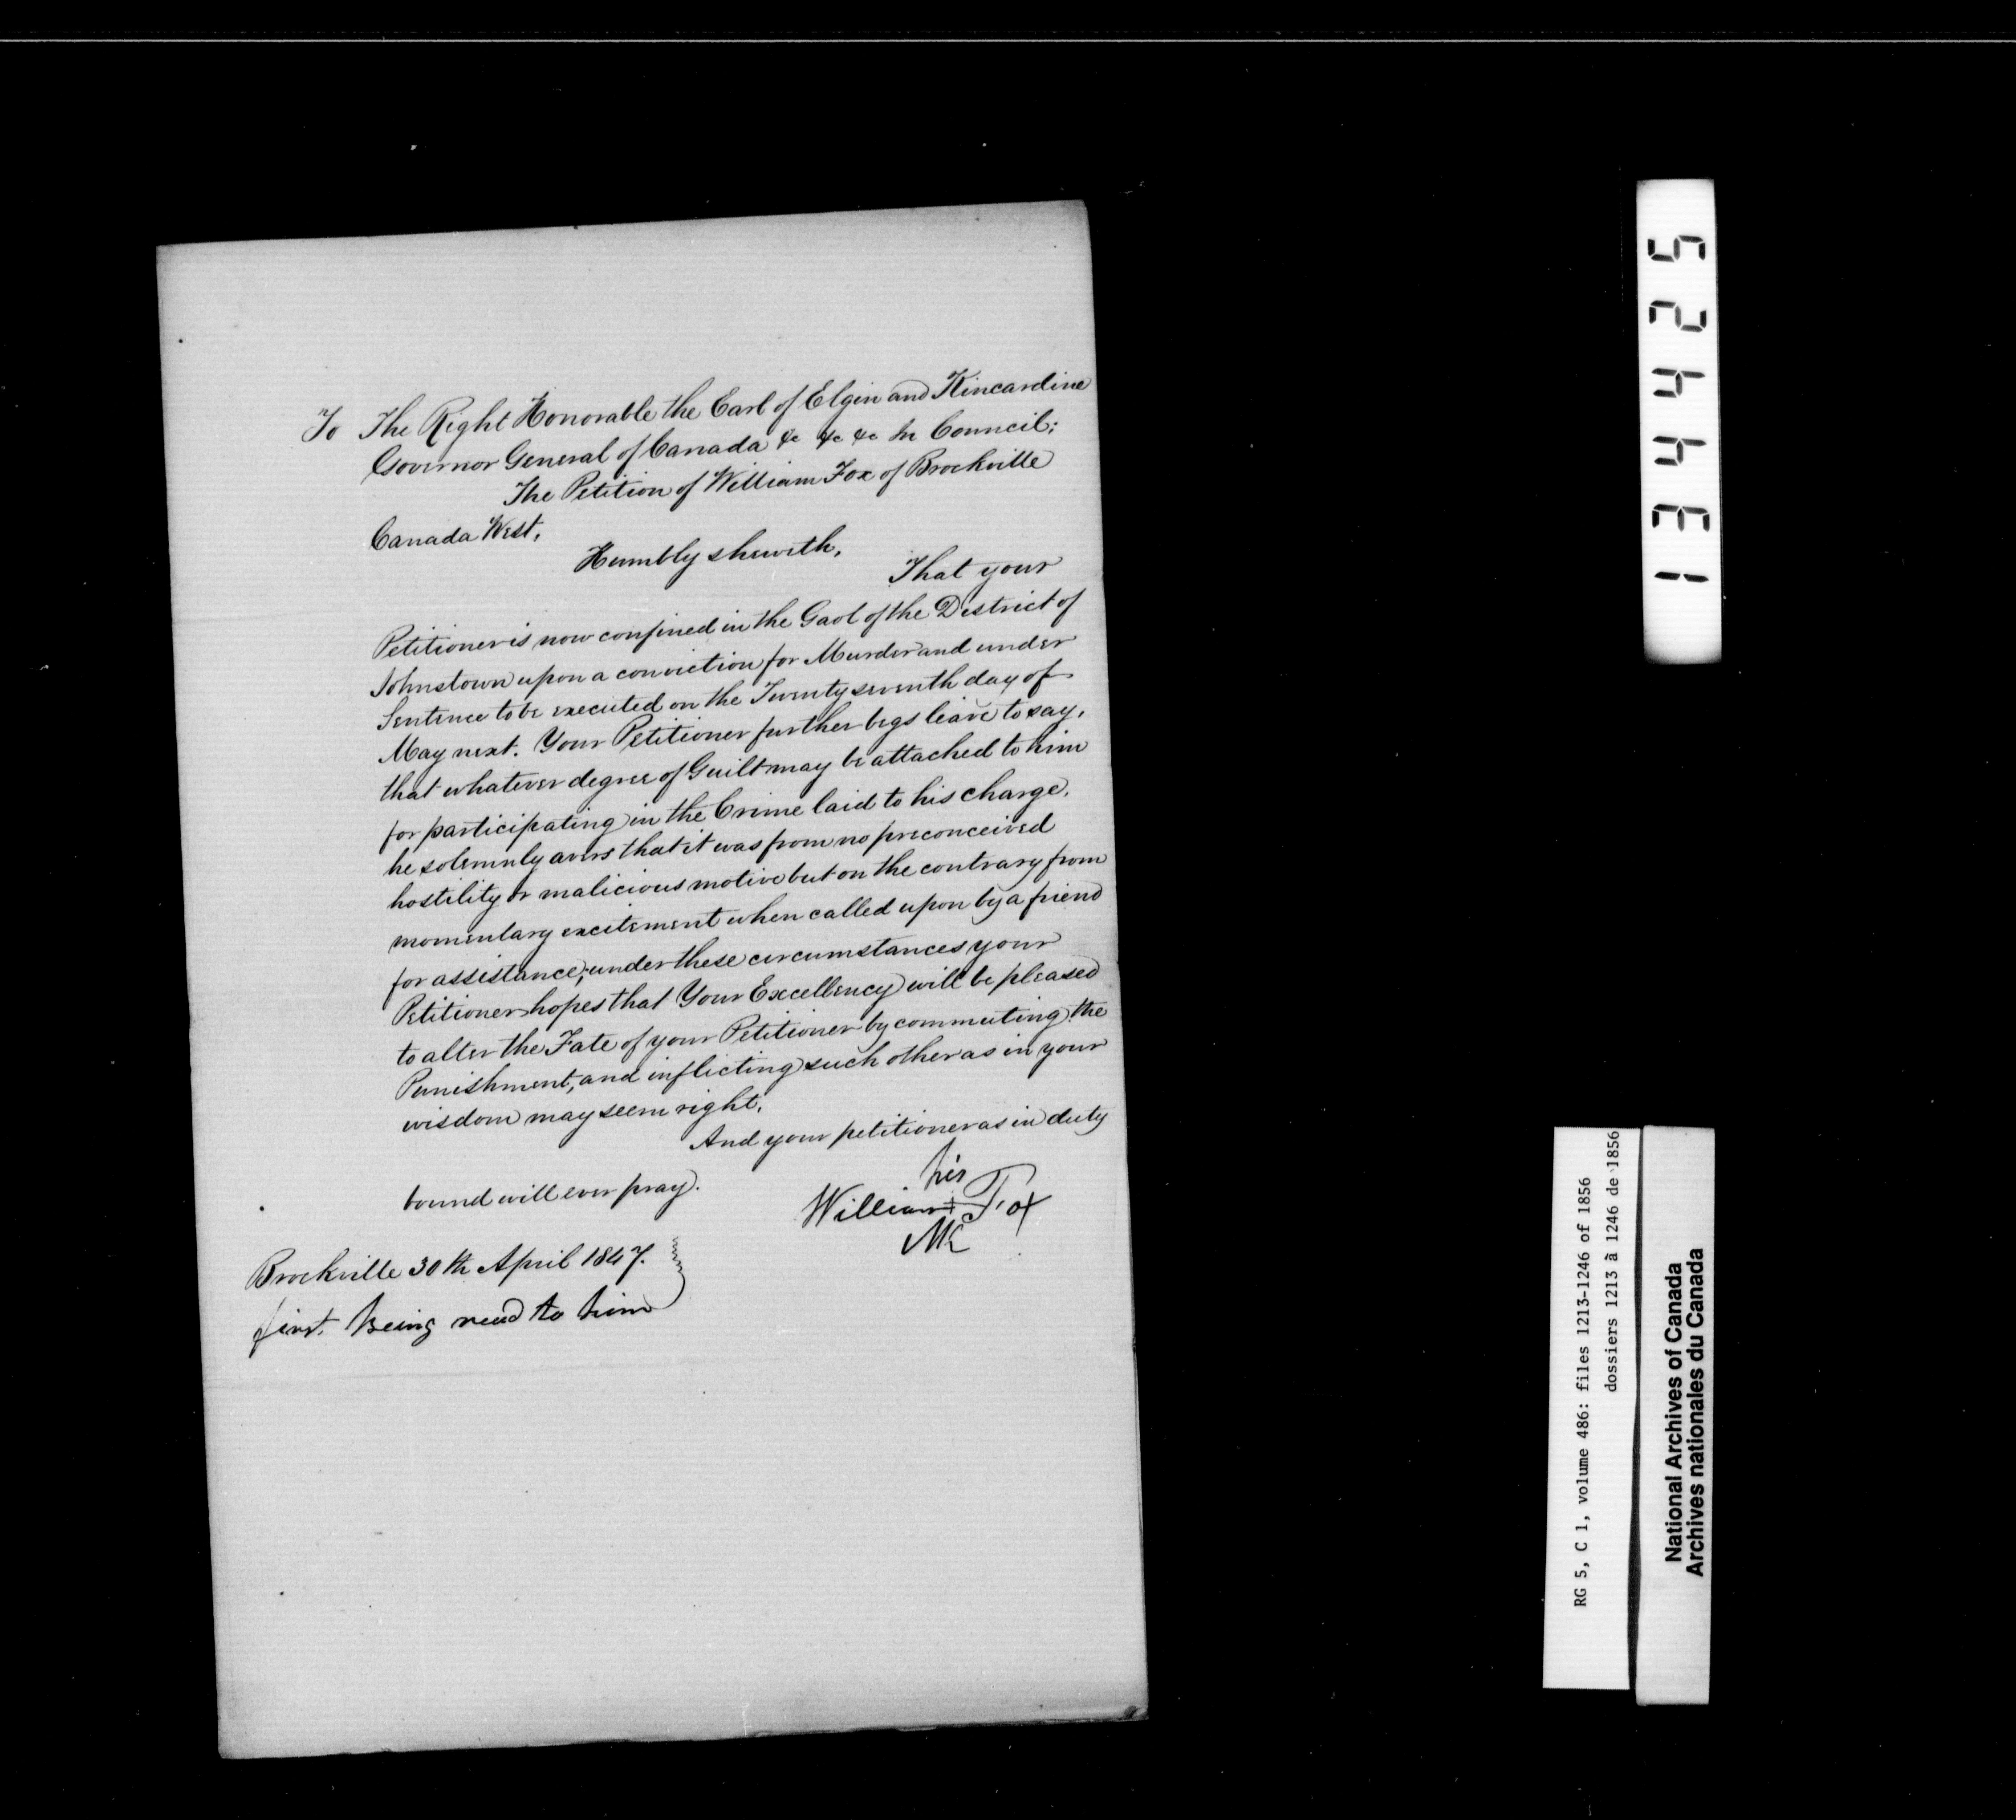 To The Right Honorable the Earl of Elgin and Kincardine
Governor General of Canada &c &c &c In Council:
The Petition of William Fox of Brockville
Canada West,
Humbly sheweth,
That your
Petitioner is now confined in the Gaol of the District of
Johnstown upon a conviction for Murder and under
Sentence to be executed on the Twenty seventh day of
May next. Your Petitioner further begs leave to say,
that whatever degree of Guilt may be attached to him
for participating in the Crime laid to his charge,
he solemnly avers that it was from no preconceived
hostility or malicious motive but on the contrary from
momentary excitement when called upon by a friend
for assistance; under these circumstances your
Petitioner hopes that Your Excellency will be pleased
to alter the Fate of your Petitioner by commuting the
Punishment, and inflicting such other as in your
wisdom may seem right.
And your petitioner as in duty
bound will ever pray.
his
William + Fox
Mk
Brockville 30th April 1847.
first. being read to him
134425
RG 5, C 1, volume 486: files 1213-1246 of 1856
dossiers 1213 à 1246 de 1856
National Archives of Canada
Archives nationales du Canada